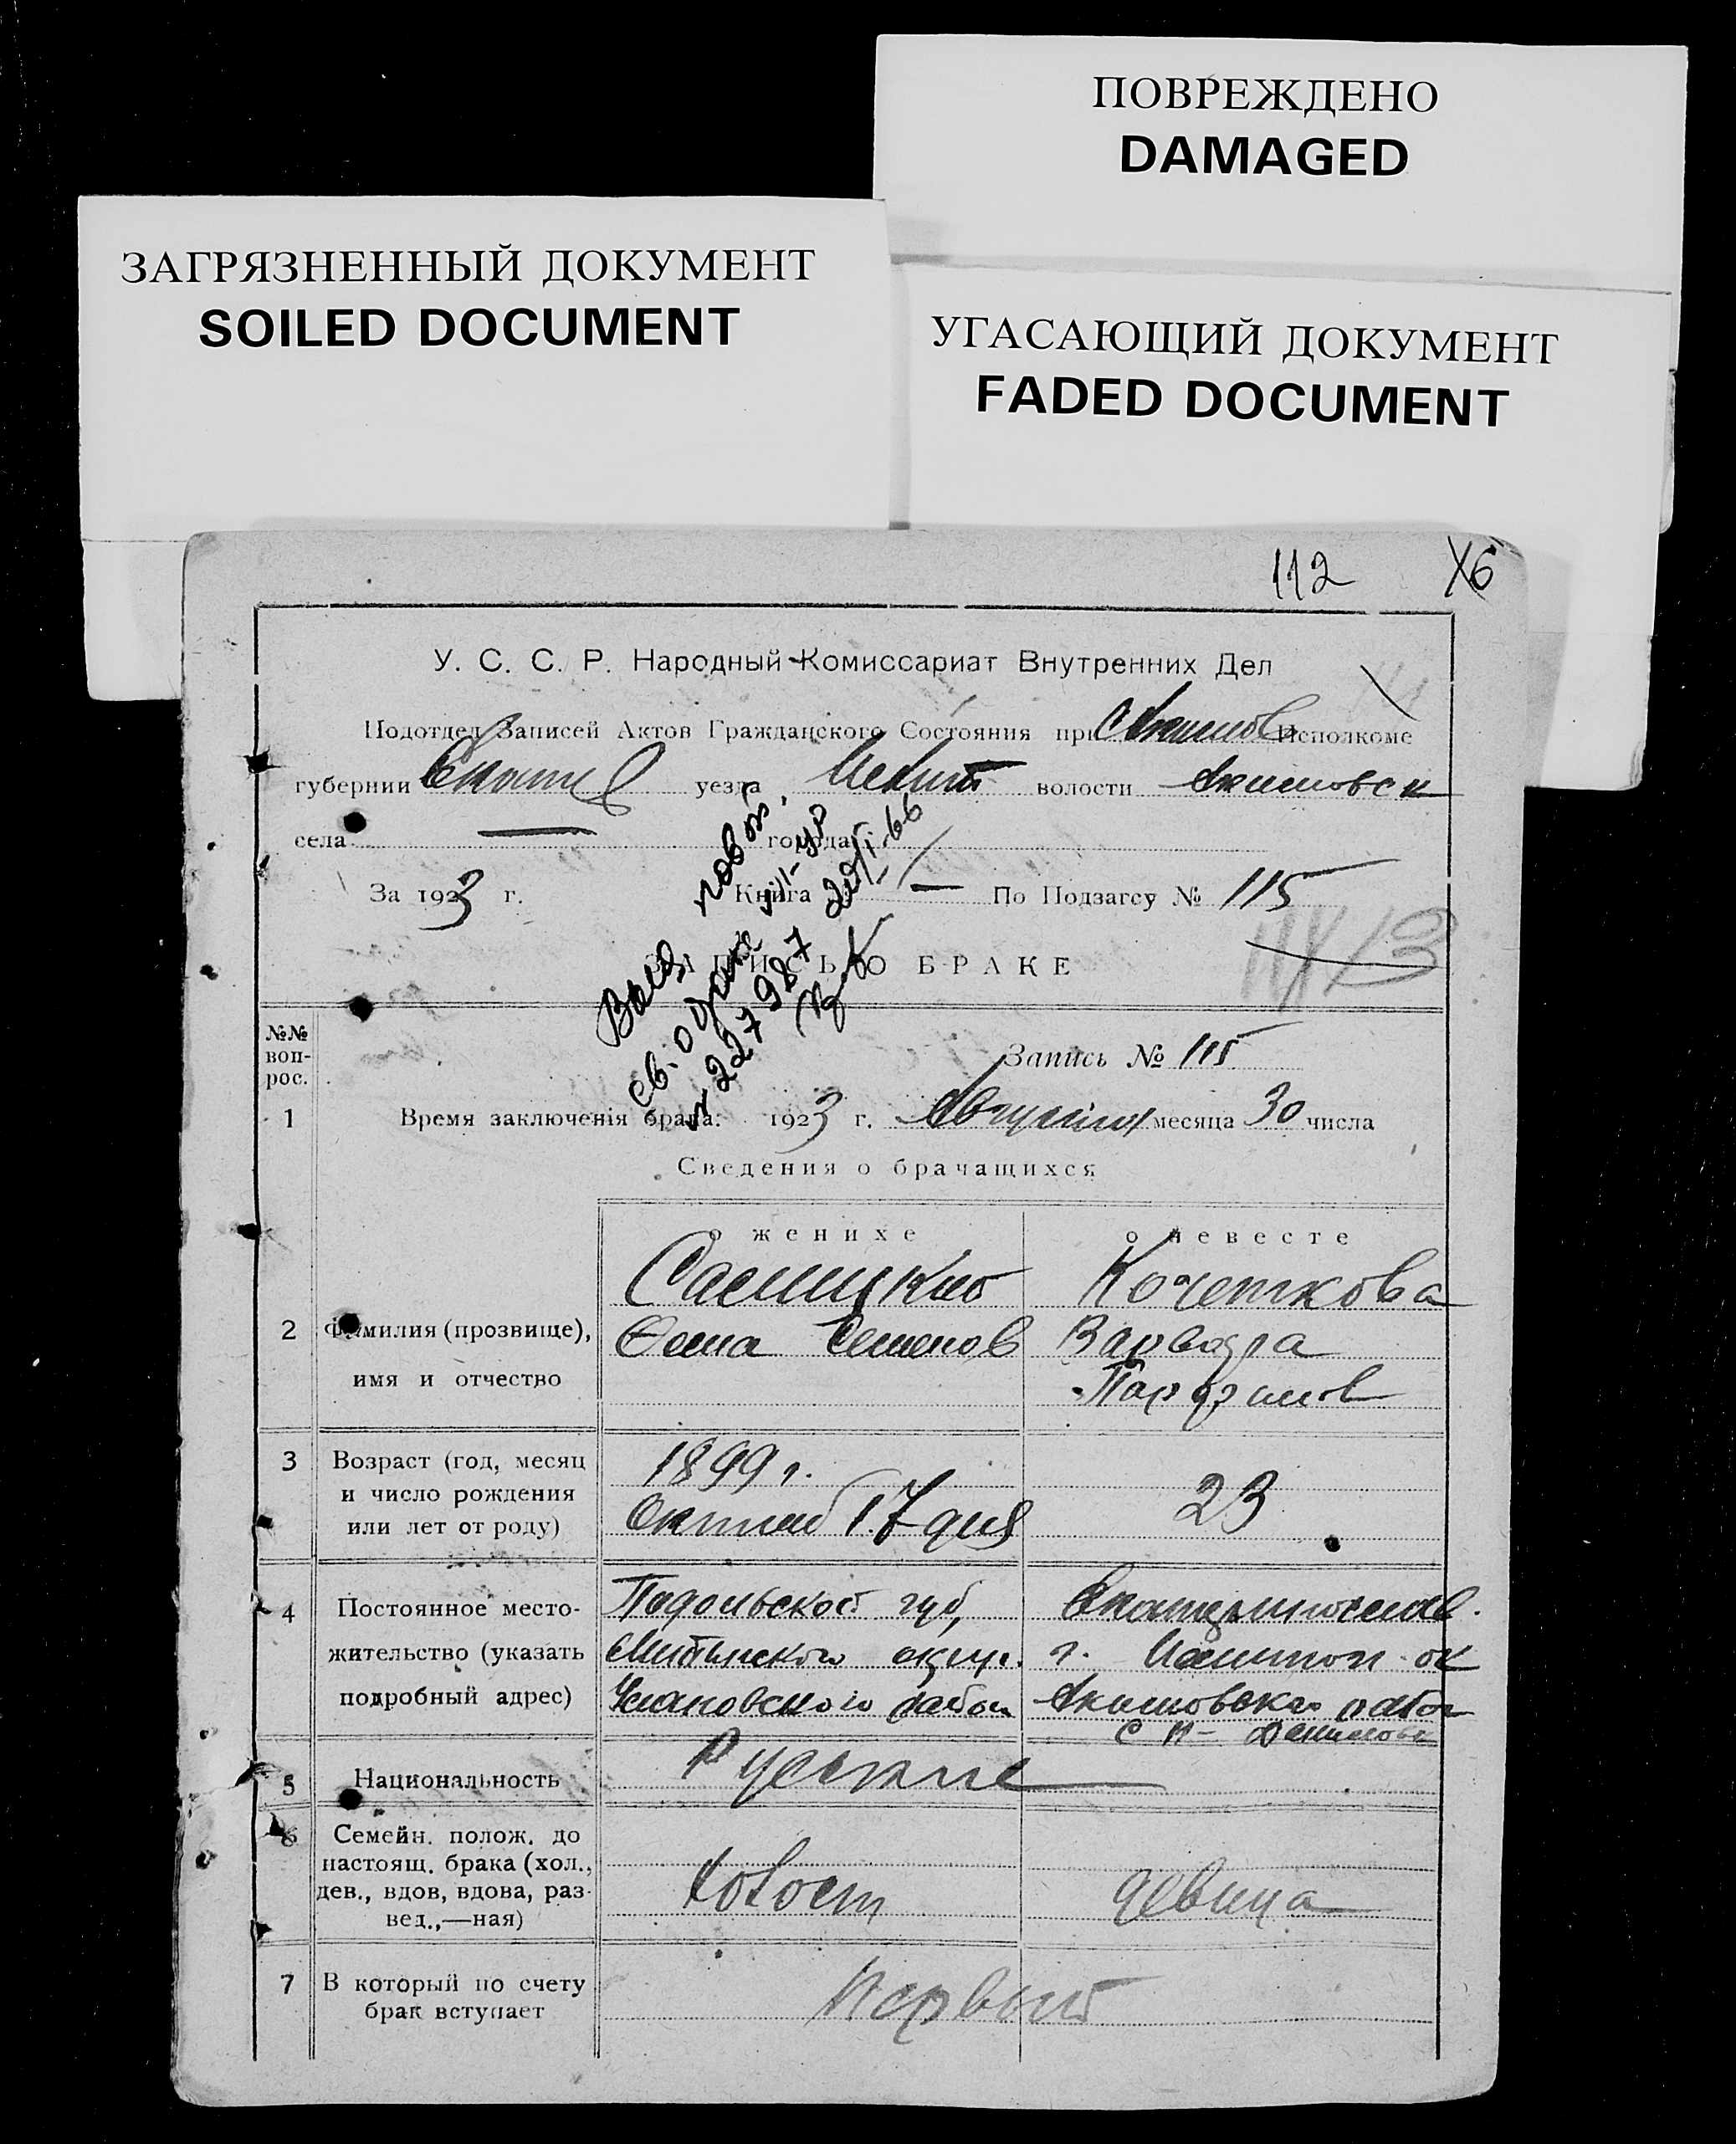 ПОВРЕЖДЕНО
DAMAGED
ЗАГРЯЗНЕННЫЙ ДОКУМЕНТ
SOILED DOCUMENT
УГАСАЮЩИЙ ДОКУМЕНТ
FADED DOCUMENT
112 16
У. С. С. Р. Народный Комиссариат Внутренних Дел
Подотдел Записей Актов Гражданского Состояния при Исполкоме
губернии уезда Мелит волости Акимовск
села — города
За 1923 г. Книга — По Подзагсу № 115
ЗАПИСЬ О БРАКЕ
Выд повт.
св. о браке
№ 227987 20/I-66
№№ воп-рос.
Запись № 115
1 Время заключенія брака: 1923 г. Августа месяца 30 числа
Сведения о брачащихся
о женихе о невесте
2 Фамилия (прозвище),
имя и отчество
Кочеткова
Фома Семенов Варвара
Парфенов
3 Возраст (год, месяц
и число рождения
или лет от роду)
1899 г.
Октяб 17 дня
23
4 Постоянное место-
жительство (указать
подробный адрес)
Подольской губ,
округ.
Улановского район
Екатеринослав.
г. Мелитоп. ок
Акимовска район
с Н- Даниловка
5 Национальность Русские
6 Семейн. полож. до
настоящ. брака (хол.,
дев., вдов, вдова, раз-
вед.,—ная)
Холост девица
7 В который по счету
брак вступает
первый